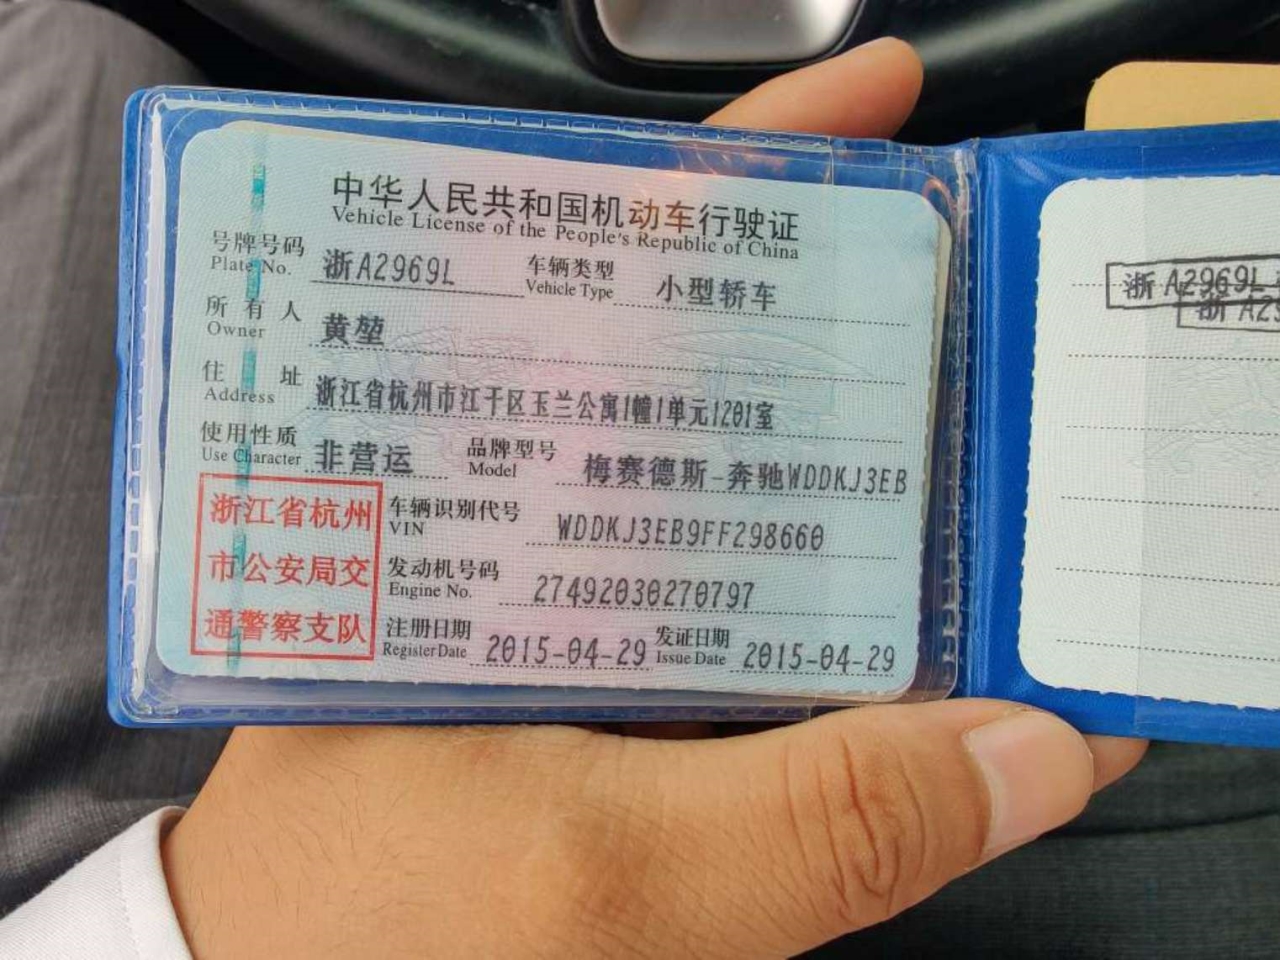 中华人民共和国机动车行驶证
Vehicle License of the People's Republic of China
号牌号码 浙A2969L 车辆类型 小型轿车
Plate No. Vehicle Type
所有人 黄堃
Owner
住址 浙江省杭州市江干区玉兰公寓1幢1单元1201室
Address
使用性质 非营运 品牌型号 梅赛德斯-奔驰WDDKJ3EB
Use Character Model
浙江省杭州
市公安局交
通警察支队
车辆识别代号 WDDKJ3EB9FF298660
VIN
发动机号码 27492030270797
Engine No.
注册日期 2015-04-29 发证日期 2015-04-29
Register Date Issue Date
浙A2969L
浙A29